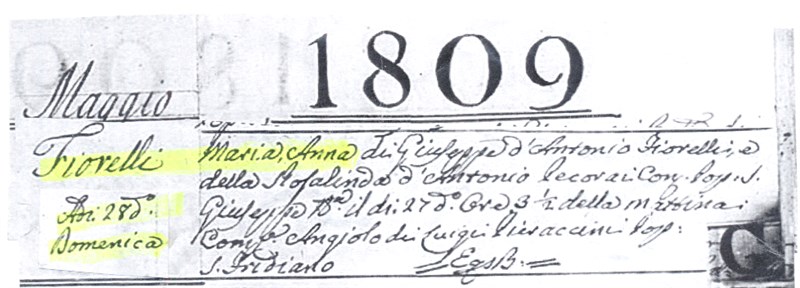 1809
Maggio
Fiorelli
Adi: 28 do.
Domenica
Maria, Anna di Giuseppe d'Antonio Fiorelli, e
della Rosalinda d'Antonio Pecorai Con. Pop: S.
Giuseppe Na. il di: 27 do. Ore 3 1/2 della mattina:
Compe. Angiolo di Luigi Pieraccini Pop:
S. Fridiano
G